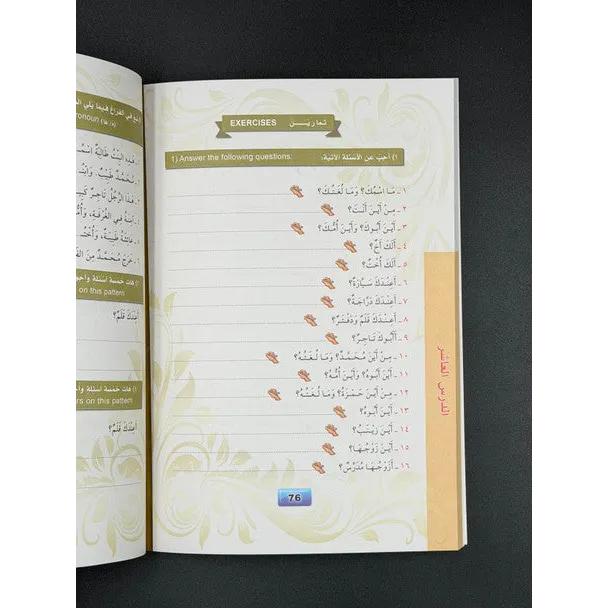 EXERCISES تـمـاريـــن
1) Answer the following questions: ١) أَجِبْ عَنِ الأَسْئِلَةِ الآتِيَةِ:
١ ـ مَا اسْمُكَ؟ وَمَا لُغَتُكَ؟
٢ ـ مِنْ أَيْنَ أَنْتَ؟
٣ ـ أَيْنَ أَبُوكَ؟ وَأَيْنَ أُمُّكَ؟
٤ ـ أَلَكَ أَخٌ؟
٥ ـ أَلَكَ أُخْتٌ؟
٦ ـ أَعِنْدَكَ سَيَّارَةٌ؟
٧ ـ أَعِنْدَكَ دَرَّاجَةٌ؟
٨ ـ أَعِنْدَكَ قَلَمٌ وَدَفْتَرٌ؟
٩ ـ أَأَبُوكَ تَاجِرٌ؟
١٠ ـ مِنْ أَيْنَ مُحَمَّدٌ؟ وَمَا لُغَتُهُ؟
١١ ـ أَيْنَ أَبُوهُ؟ وَأَيْنَ أُمُّهُ؟
١٢ ـ مِنْ أَيْنَ حَمْزَةُ؟ وَمَا لُغَتُهُ؟
١٣ ـ أَيْنَ أَبُوهُ؟
١٤ ـ أَيْنَ زَيْنَبُ؟
١٥ ـ أَيْنَ زَوْجُهَا؟
١٦ ـ أَزَوْجُهَا مُدَرِّسٌ؟
76
الدرس العاشر
فِي الفَرَاغِ فِيمَا يَلِي
(ه/ها)
ـ هَذِهِ البِنْتُ طَالِبَةٌ
ـ مُحَمَّدٌ طَبِيبٌ.
ـ هَذَا الرَّجُلُ تَاجِرٌ
فِي الغُرْفَةِ،
ـ عَائِشَةُ طَبِيبَةٌ،
ـ خَرَجَ مُحَمَّدٌ مِنَ
هَاتِ خَمْسَةَ أَسْئِلَةٍ
on this pattern
أَعِنْدَكَ قَلَمٌ؟
هَاتِ خَمْسَةَ أَسْئِلَةٍ
on this pattern
أَعِنْدَكَ قَلَمٌ؟